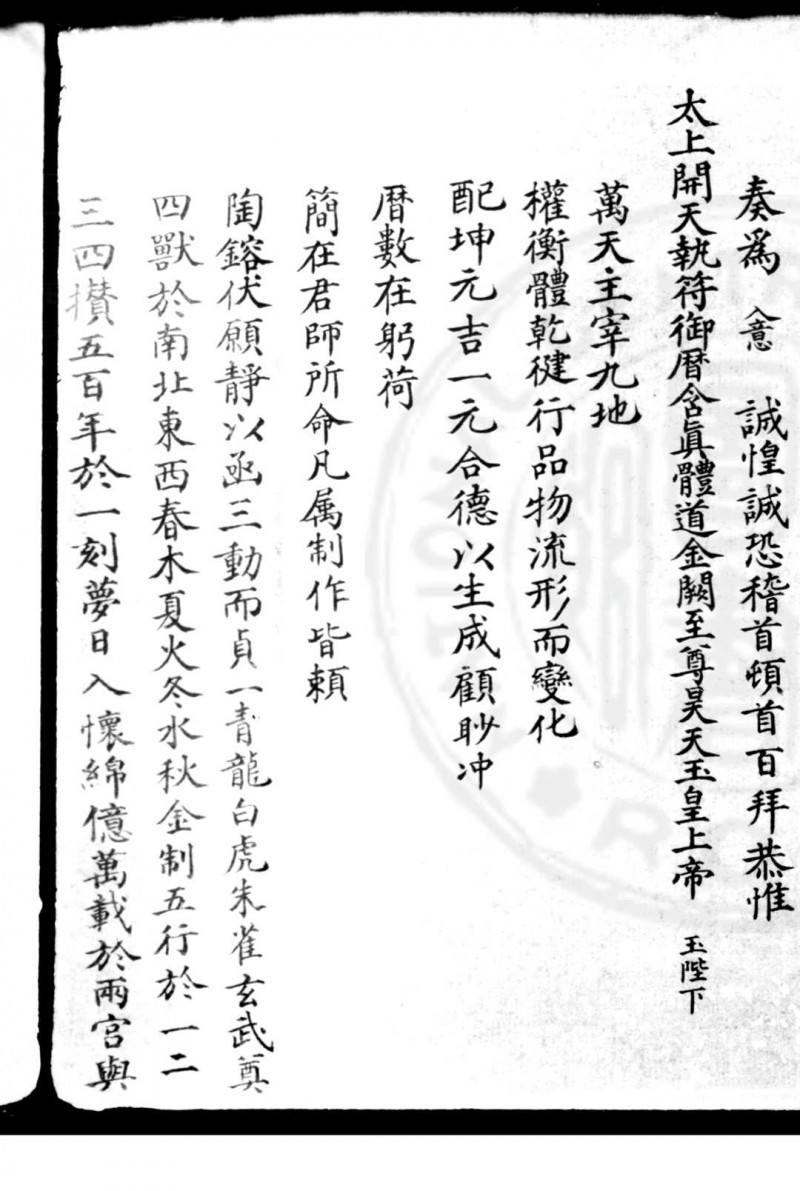 奏爲 入意 誠惶誠恐稽首頓首百拜恭惟
太上開天執符御曆含眞體道金闕至尊昊天玉皇上帝 玉陛下
萬天主宰九地
權衡體乾健行品物流形而變化
配坤元吉一元合德以生成顧眇冲
曆數在躬荷
簡在君師所命凡属制作皆賴
陶鎔伏願靜以函三動而貞一青龍白虎朱雀玄武奠
四獸於南北東西春木夏火冬水秋金制五行於一二
三四攢五百年於一刻夢日入懷綿億萬載於兩宮與